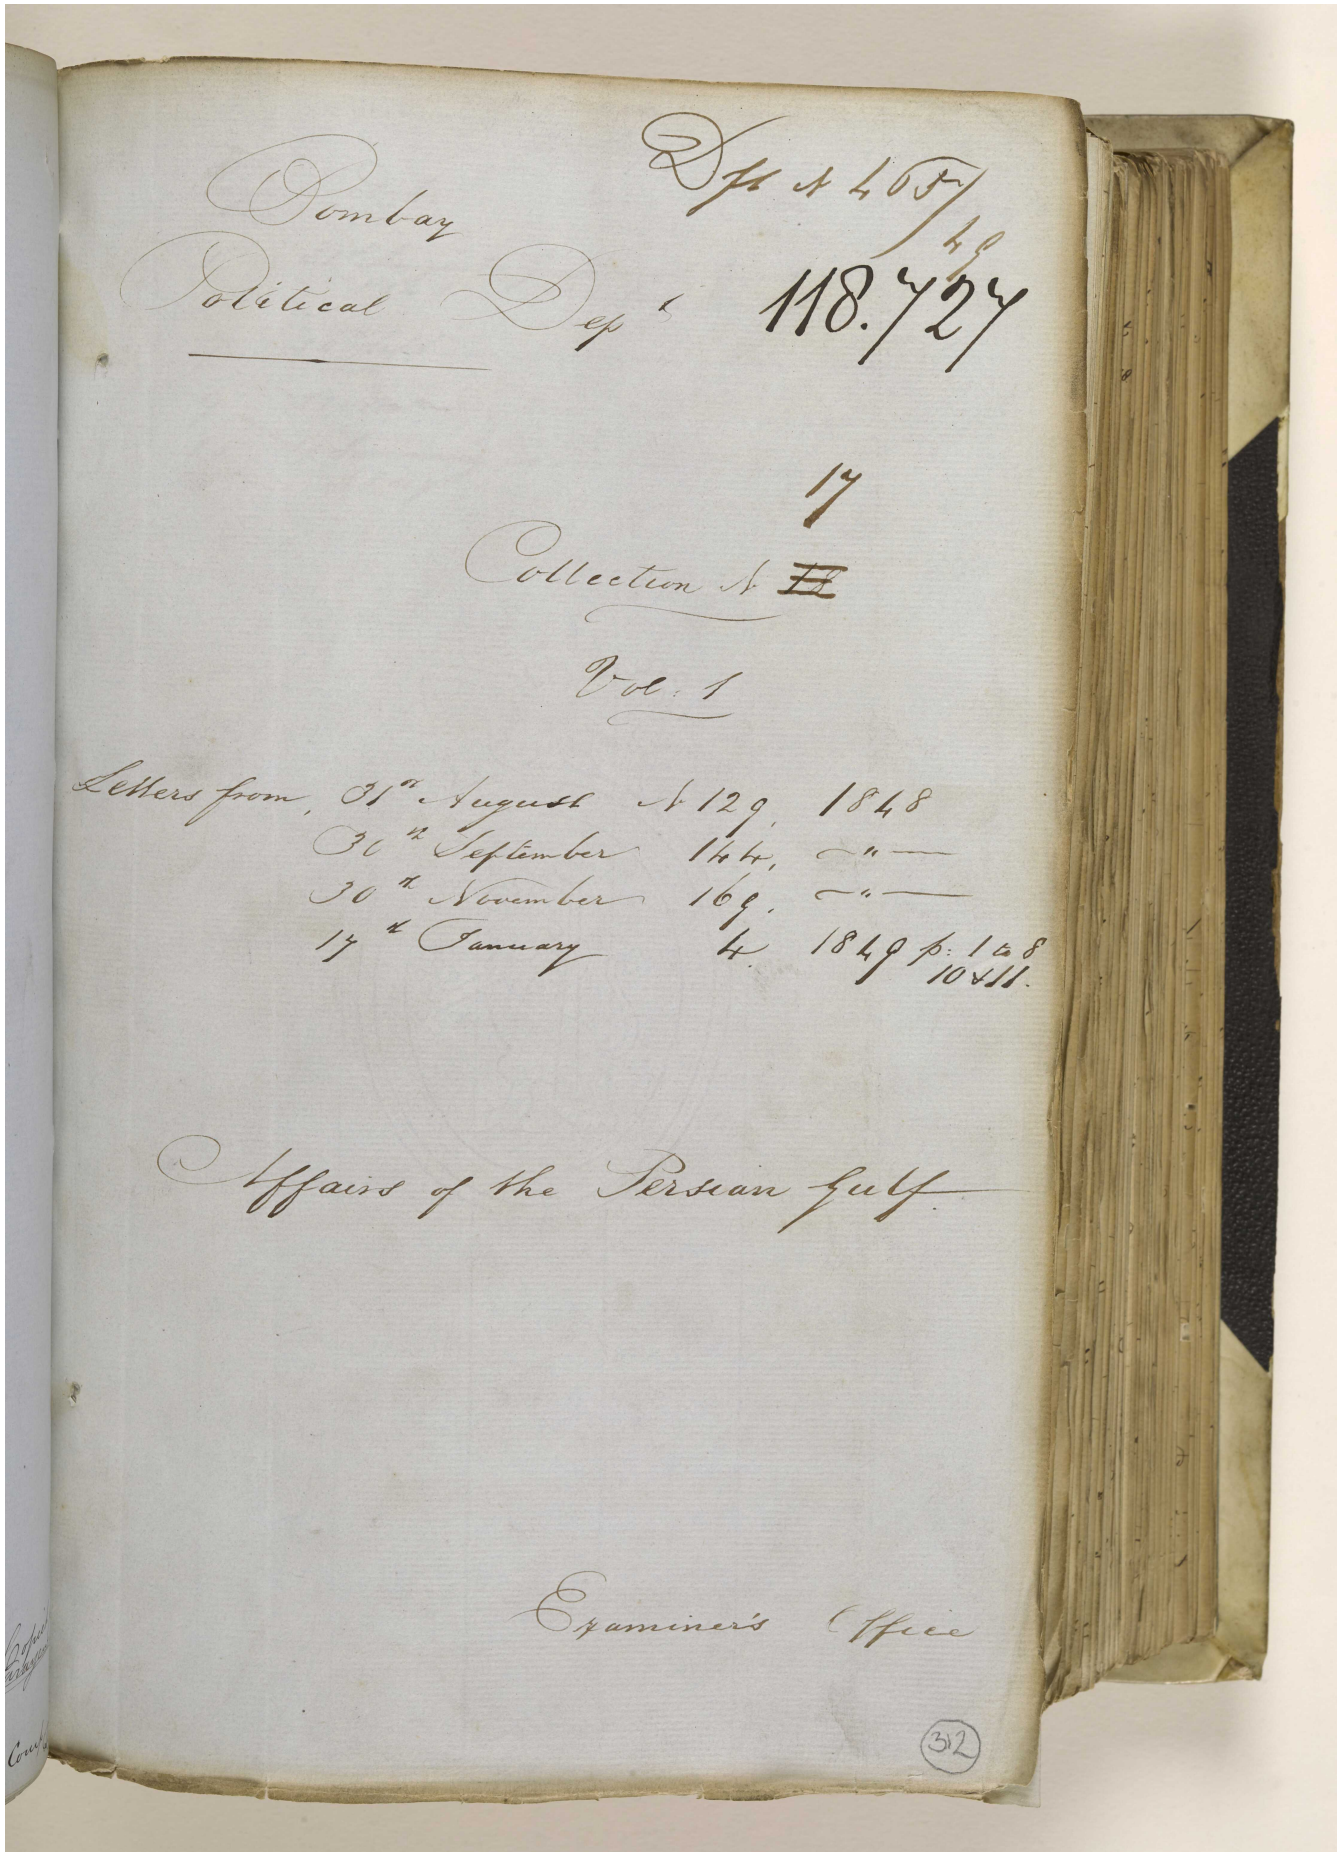 Dft N 465/49
Bombay
Political Dept
118.727
17
Collection N 18
Vol: 1
Letters from, 31st August N 129. 1848
30th September 144. —"—
30th November 169. —"—
17th January 4 1849 p: 1 to 8
10 & 11.
Affairs of the Persian Gulf.
Examiner's Office
312